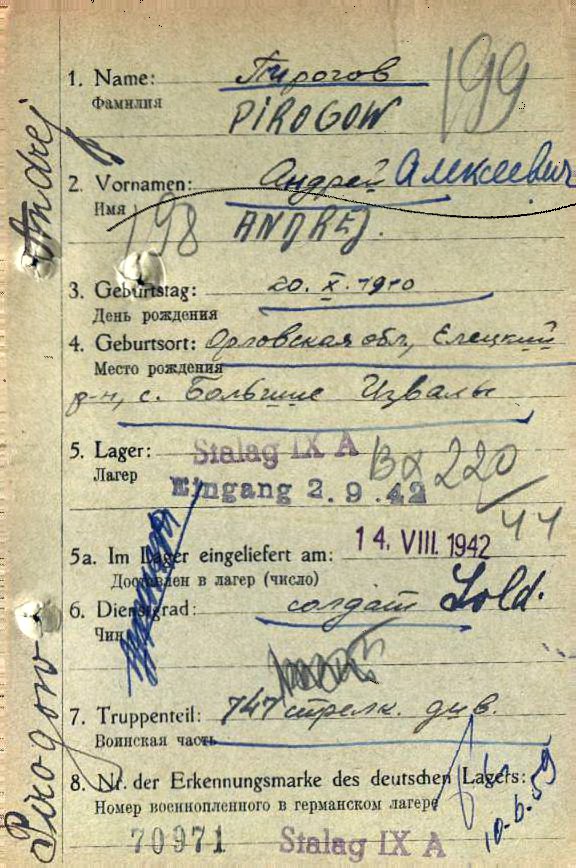 Pirogow Andrej
199
1. Name: Пирогов
Фамилия PIROGOW
2. Vornamen: Андрей Алексеевич
Имя 198 ANDREJ.
3. Geburtstag: 20. X. 1910
День рождения
4. Geburtsort: Орловская обл, Елецкий
Место рождения
р-н, с. Большие Извалы
5. Lager: Stalag IX A
Лагерь
Eingang 2.9.42
220
44
5a. Im Lager eingeliefert am: 14. VIII. 1942
Доставлен в лагер (число)
6. Dienstgrad: солдат Sold.
Чин
7. Truppenteil: 747 стрелк. див.
Воинская часть
8. Nr. der Erkennungsmarke des deutschen Lagers:
Номер военнопленного в германском лагере
10.6.59
70971 Stalag IX A